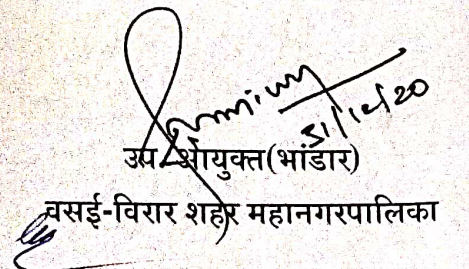 31/12/20
उप-आयुक्त(भांडार)
वसई-विरार शहर महानगरपालिका